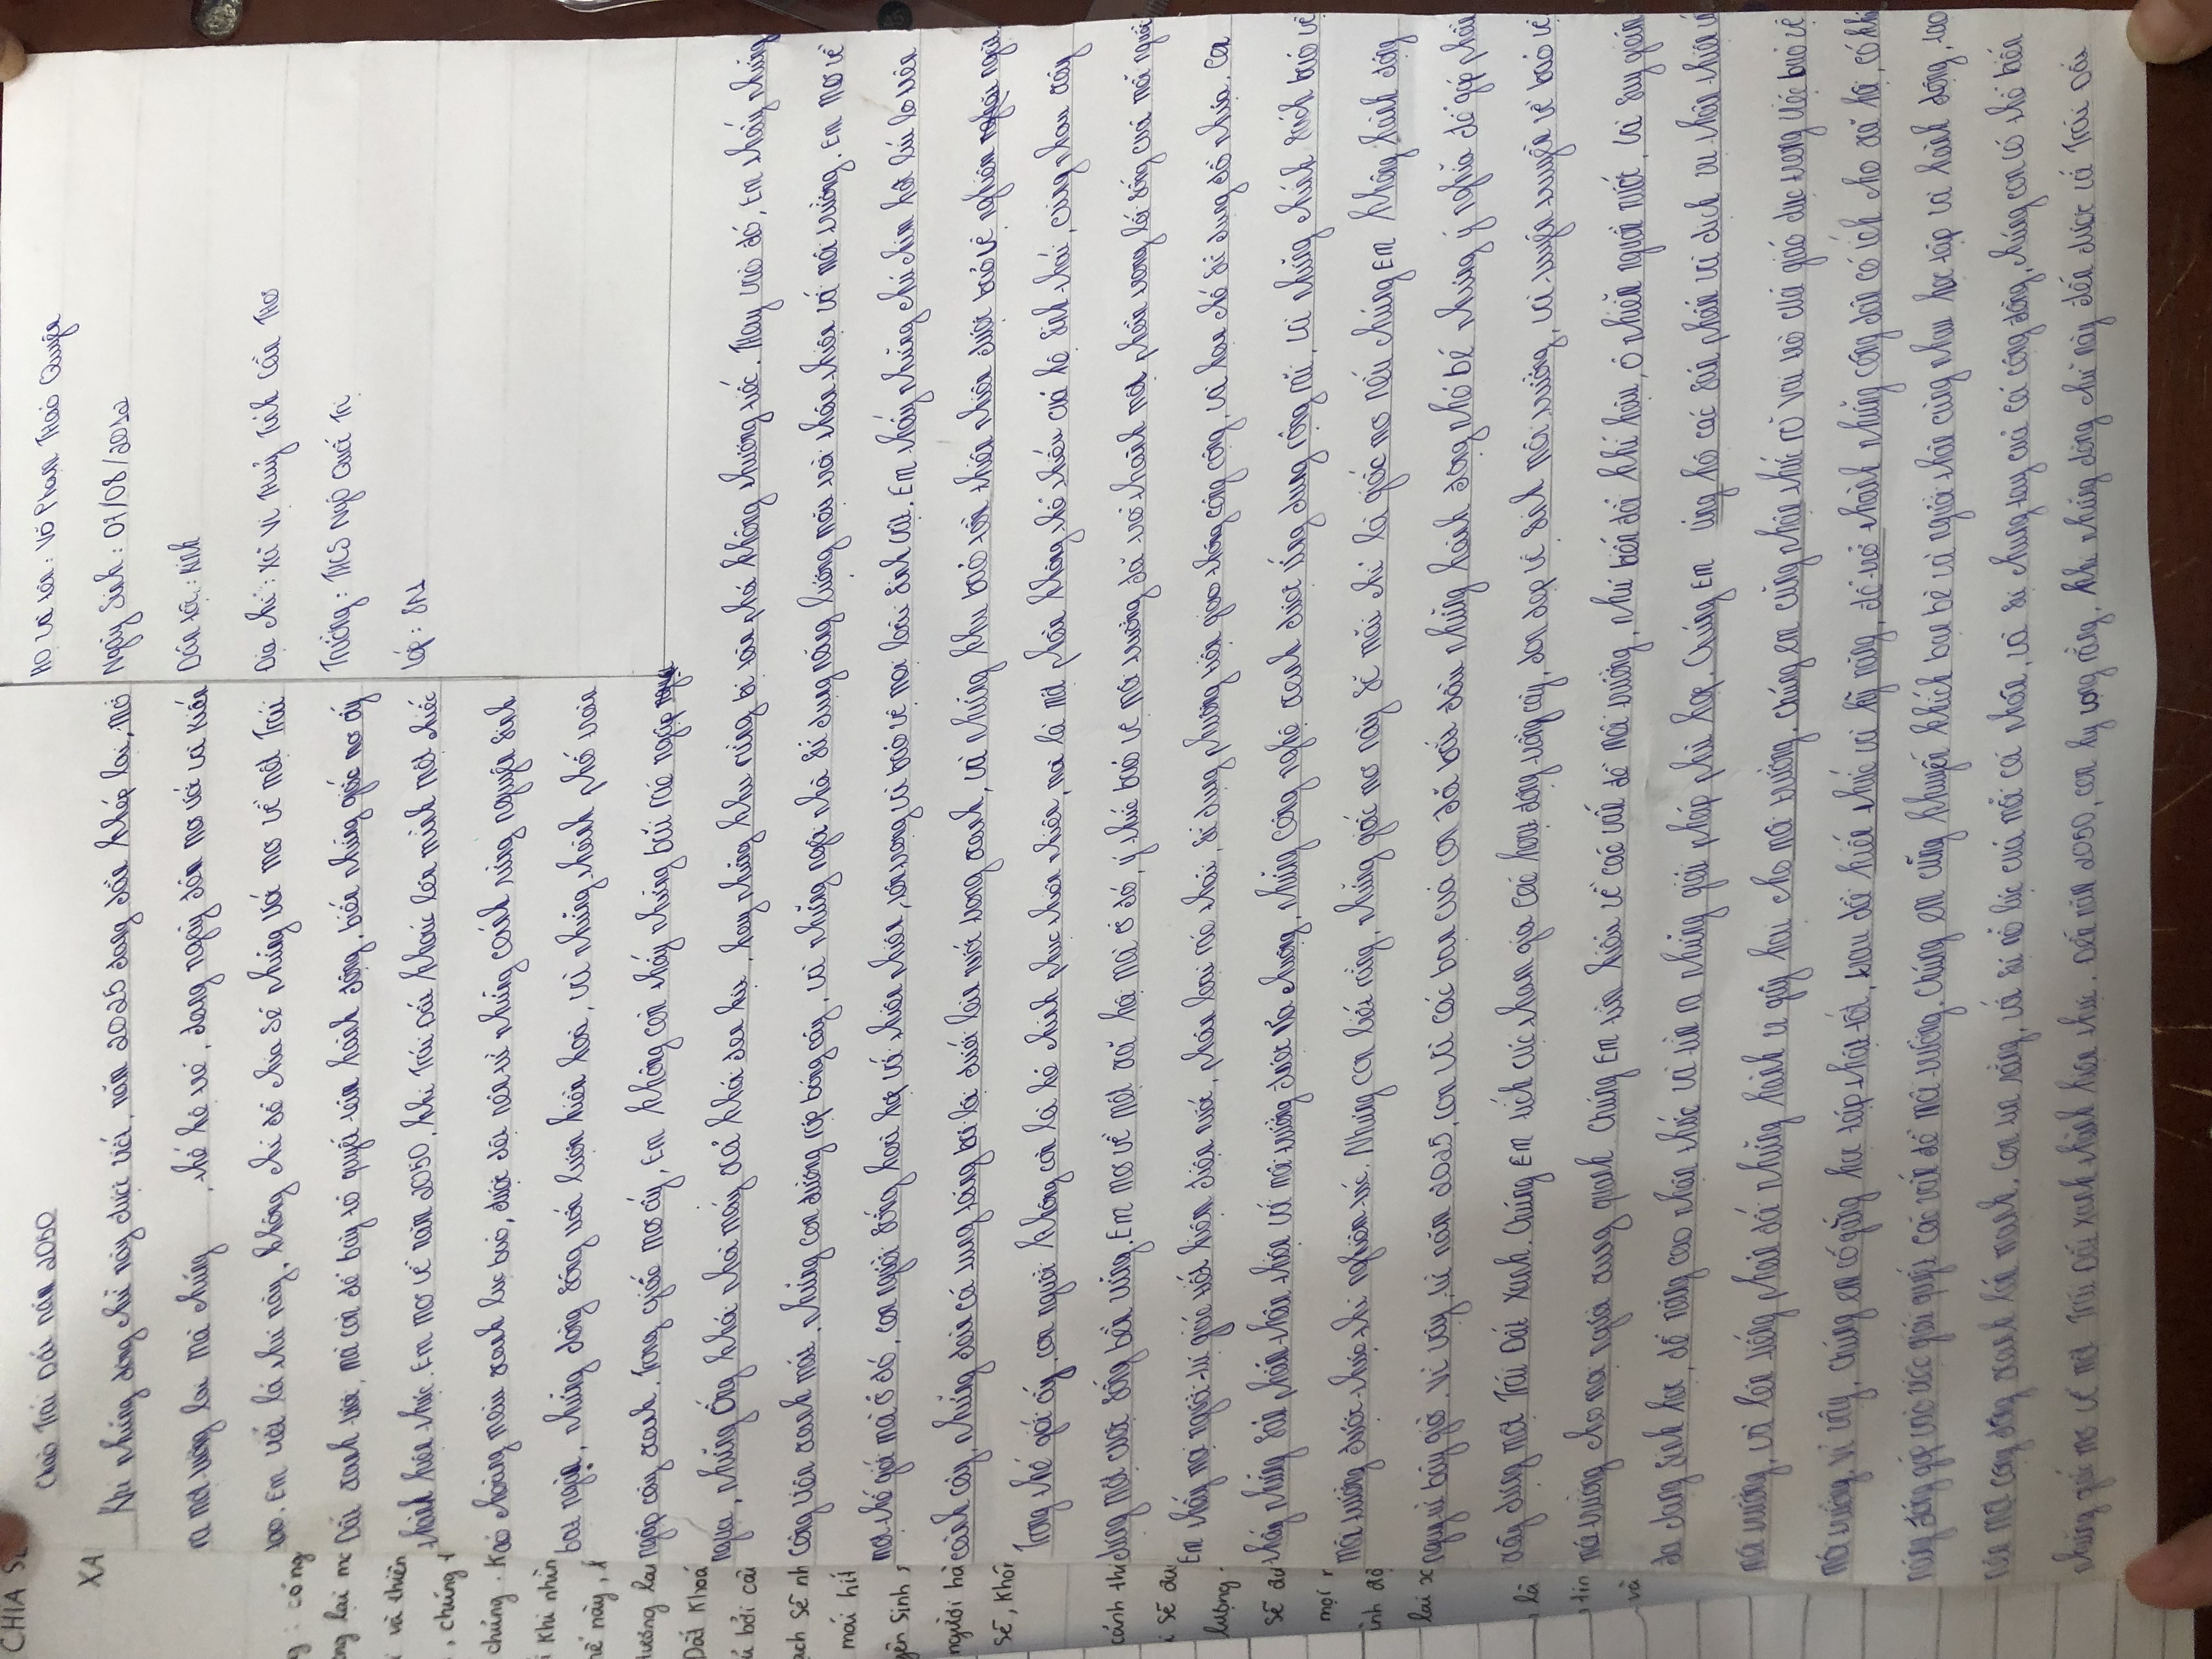 Họ và tên: Võ Phan Thảo Quyên
Ngày sinh: 07/08/20
Dân tộc: Kinh
Địa chỉ: Xã Vị Thủy Tỉnh Cần Thơ
Trường: THCS Ngô Quốc Trị
Lớp: 8A
Chào Trái Đất năm 2050
Khi những dòng chữ này được viết, năm 2025 đang dần khép lại, mở
ra một tương lai mà chúng , thế hệ trẻ, đang ngày đêm mơ ước và kiến
tạo. Em viết lá thư này, không chỉ để chia sẻ những ước mơ về một Trái
Đất xanh tươi, mà còn để bày tỏ quyết tâm hành động, biến những giấc mơ ấy
thành hiện thực. Em mơ về năm 2050, khi Trái Đất khoác lên mình một chiếc
áo choàng màu xanh lục bảo, được dệt nên từ những cánh rừng nguyên sinh
bạt ngàn, những dòng sông uốn lượn hiền hòa, và những thành phố tràn
ngập cây xanh. Trong giấc mơ ấy, Em không còn thấy những bãi rác ngập
ngụa, những ống khói nhà máy nhả khói đen kịt, hay những khu rừng bị tàn phá không thương tiếc. Thay vào đó, Em thấy những
công viên xanh mát, những con đường rợp bóng cây, và những ngôi nhà sử dụng năng lượng mới thân thiện với môi trường. Em mơ về
một thế giới mà ở đó, con người sống hòa hợp với thiên nhiên, tôn trọng và bảo vệ mọi loài sinh vật. Em thấy những chú chim hót líu lo trên
cành cây, những đàn cá tung tăng bơi lội dưới làn nước trong xanh, và những khu bảo tồn thiên nhiên được bảo vệ nghiêm ngặt
Trong thế giới ấy, con người không còn là kẻ chinh phục thiên nhiên, mà là một phần không thể thiếu của hệ sinh thái, cùng nhau xây
dựng một cuộc sống bền vững. Em mơ về một xã hội mà ở đó, ý thức bảo vệ môi trường đã trở thành một phần trong lối sống của mỗi người
Em thấy mọi người tự giác tiết kiệm điện nước, phân loại rác thải, sử dụng phương tiện giao thông công cộng, và hạn chế sử dụng đồ nhựa. Con
thấy những sản phẩm thân thiện với môi trường được ưa chuộng, những công nghệ xanh được ứng dụng rộng rãi, và những chính sách bảo vệ
môi trường được thực thi nghiêm túc. Nhưng con biết rằng, những giấc mơ này sẽ mãi chỉ là giấc mơ nếu chúng Em không hành động
ngay từ bây giờ. Vì vậy, từ năm 2025, con và các bạn của con đã bắt đầu những hành động nhỏ bé nhưng ý nghĩa để góp phần
xây dựng một Trái Đất Xanh. Chúng Em tích cực tham gia các hoạt động trồng cây, dọn dẹp vệ sinh môi trường, và tuyên truyền về bảo vệ
môi trường cho mọi người xung quanh Chúng Em tìm hiểu về các vấn đề môi trường, như biến đổi khí hậu, ô nhiễm nguồn nước, và suy giảm
đa dạng sinh học, để nâng cao nhận thức và tìm ra những giải pháp phù hợp. Chúng Em ủng hộ các sản phẩm và dịch vụ thân thiện
môi trường, và lên tiếng phản đối những hành vi gây hại cho môi trường. Chúng em cũng nhận thức rõ vai trò của giáo dục trong việc bảo vệ
môi trường. Vì vậy, chúng em cố gắng học tập thật tốt, trau dồi kiến thức và kỹ năng, để trở thành những công dân có ích cho xã hội, có khả
năng đóng góp vào việc giải quyết các vấn đề môi trường. Chúng em cũng khuyến khích bạn bè và người thân cùng nhau học tập và hành động, tạo
nên một cộng đồng xanh lớn mạnh. Con tin rằng, với sự nỗ lực của mỗi cá nhân, và sự chung tay của cả cộng đồng, chúng con có thể biến
những giấc mơ về một Trái Đất xanh thành hiện thực. Đến năm 2050, con hy vọng rằng, khi những dòng chữ này đến được với Trái Đất
CHIA S